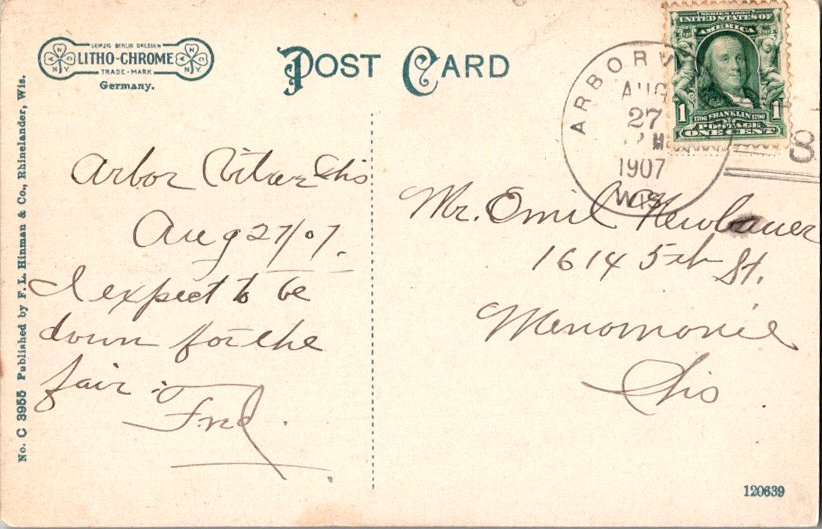 LEIPZIG BERLIN DRESDEN
LITHO-CHROME
TRADE-MARK
Germany.
POST CARD
SERIES 1902
UNITED STATES OF
AMERICA
1790 FRANKLIN 1790
POSTAGE
1 ONE CENT 1
ARBORV
AUG
27
M
1907
WIS.
8
No. C 3955 Published by F. L. Hinman & Co., Rhinelander, Wis.
Arbor Vitae Wis
Aug 27/07.
I expect to be
down for the
fair
Fred.
Mr. Emil Newbauer
1614 5th St.
Menomonie
Wis
120639